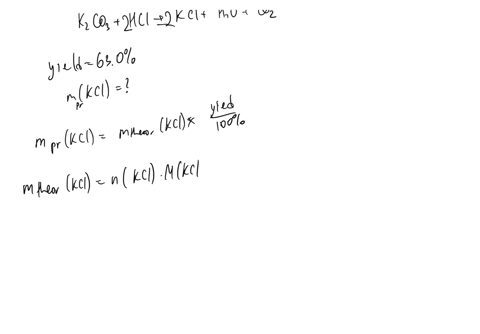 K2CO3 + 2HCl → 2KCl +
yield = 63.0%
mpr(KCl) = ?
mpr(KCl) = mtheor.(KCl) × yield/100%
mtheor(KCl) = n(KCl) · M(KCl